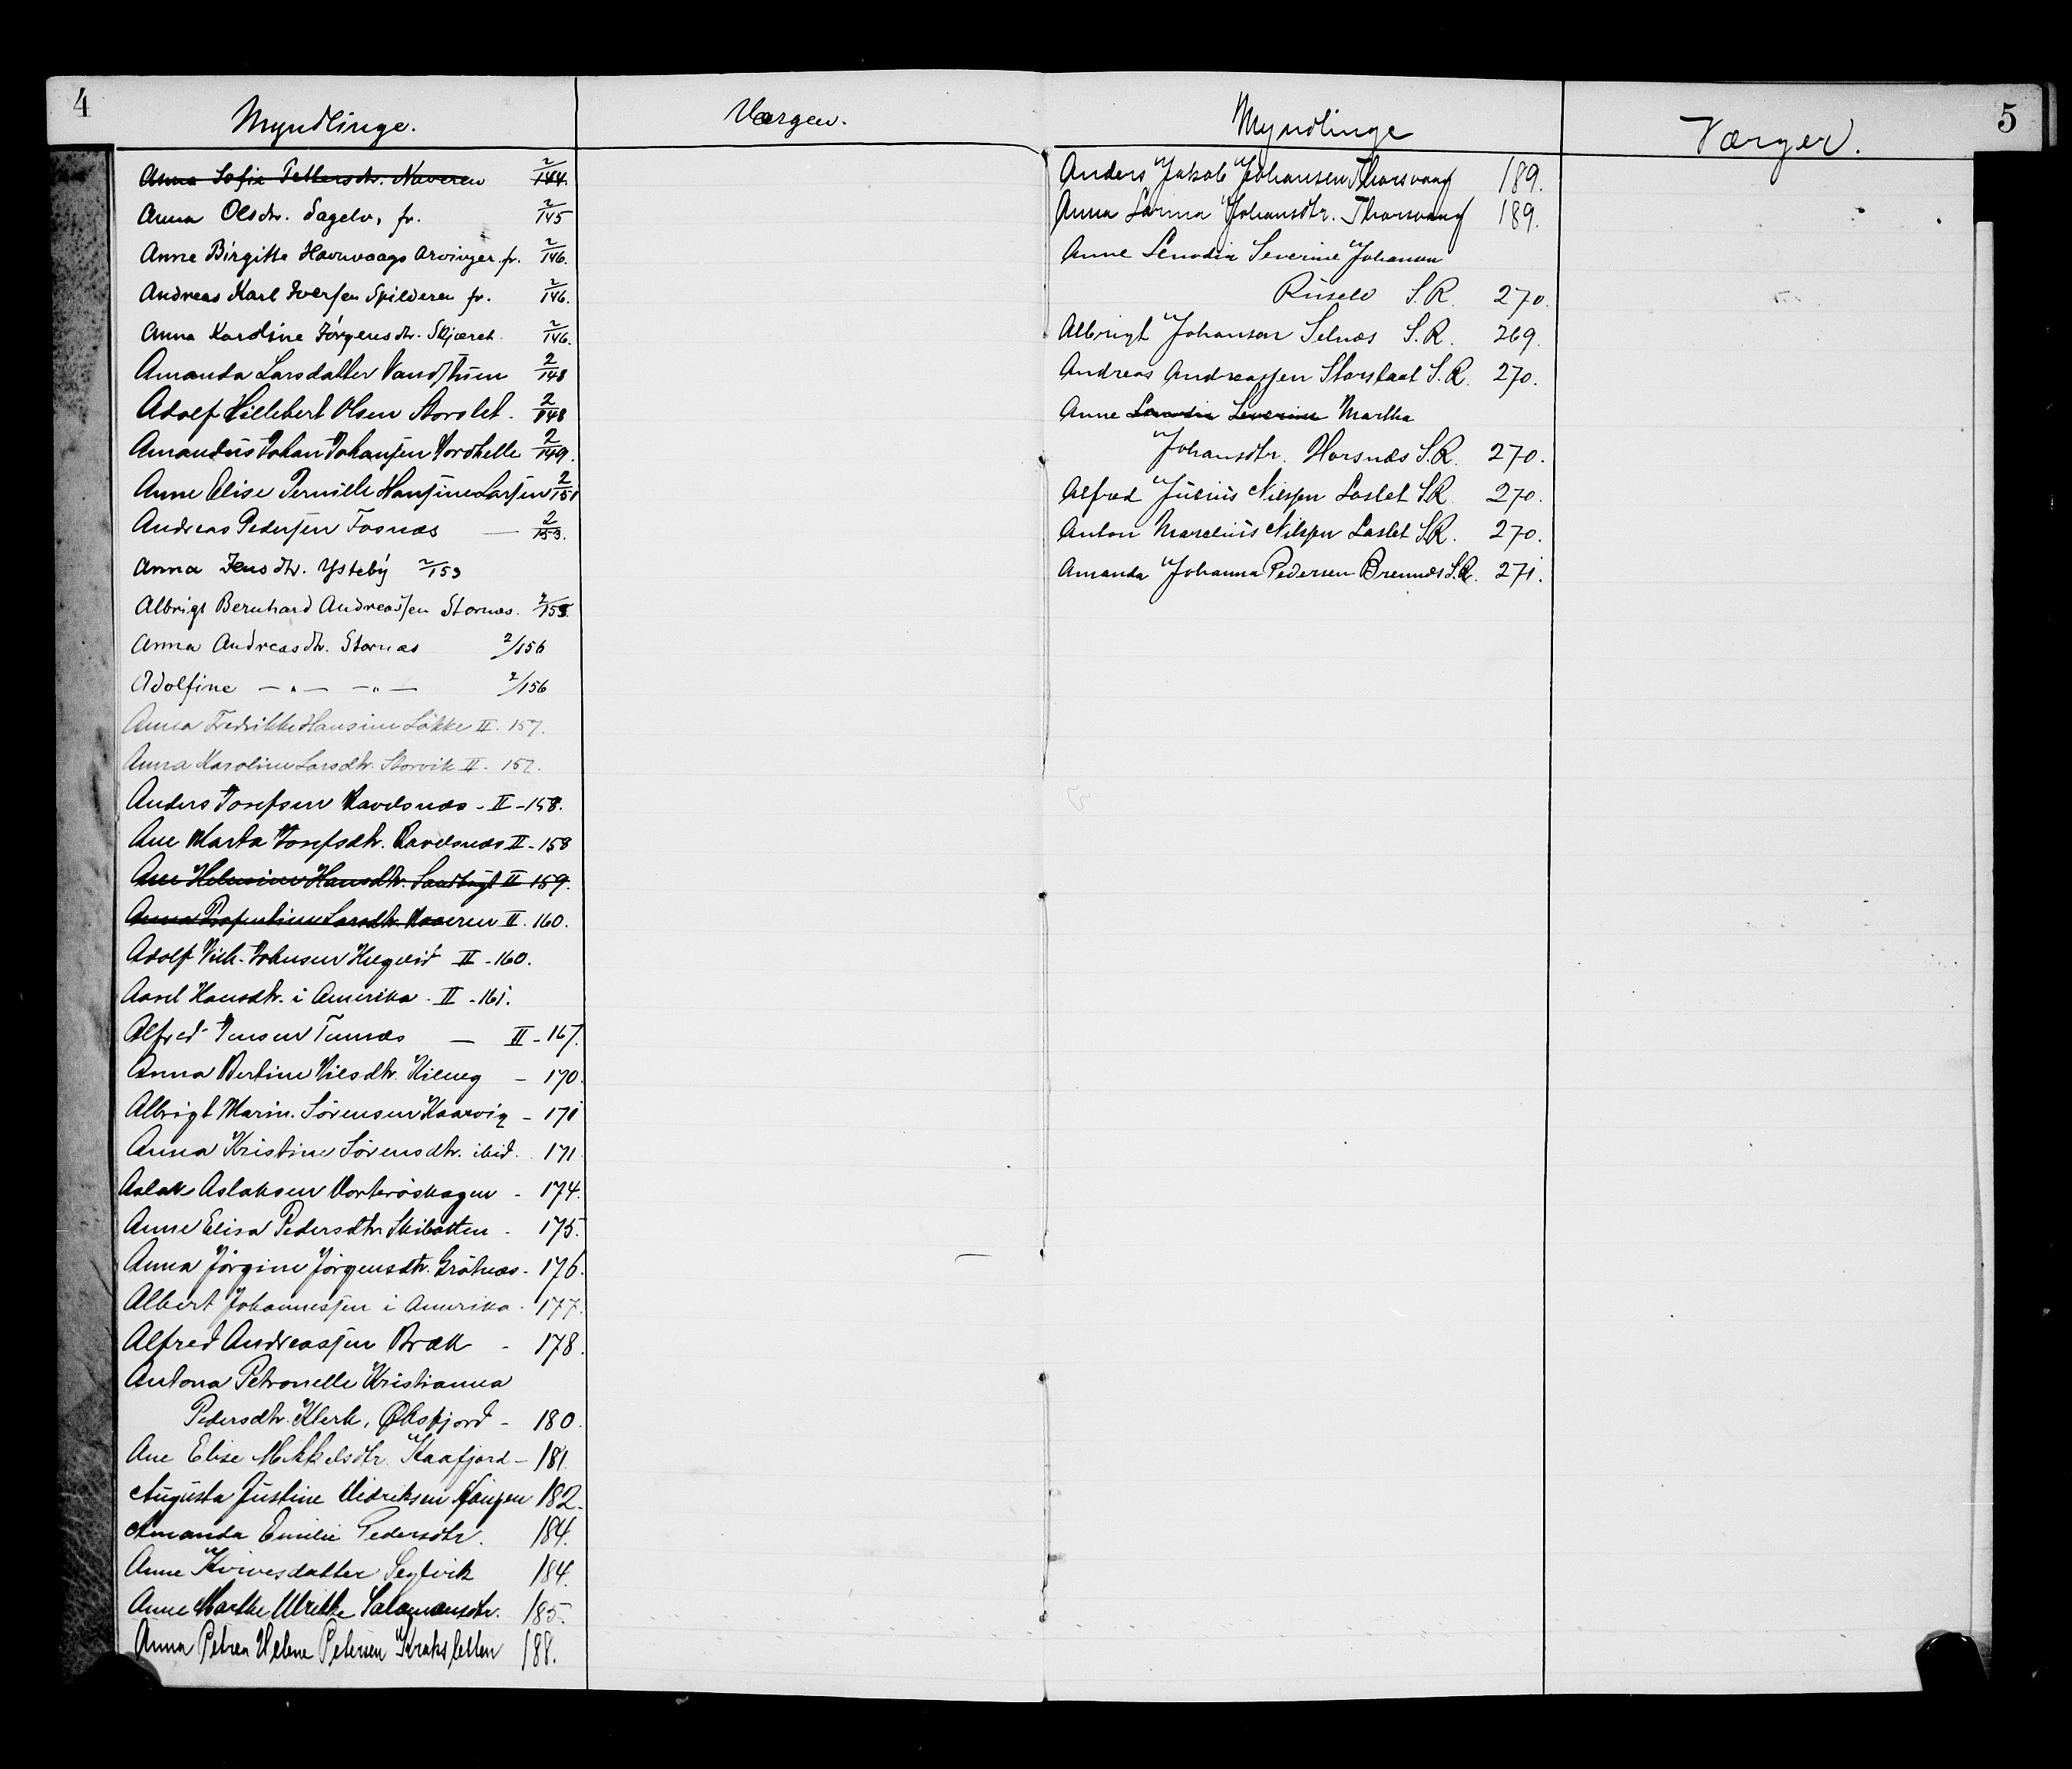 4
Myndlinge.
Værger.
Anna Sofie Pettersdtr. Naveren 2/144.
Anna Olsdtr. Sagelv, fr. 2/145
Anne Birgitte Havnvaags arvinger. fr. 2/146.
Andreas Karl Iversen Spilderen fr. 2/146.
Anna Karoline Jörgensdtr. Skjæret 2/146.
Amanda Larsdatter Vandstuen 2/148
Adolf Hillebert Olsen Storslet. 2/148
Amandus Johan Johansen Nordkelle 2/149.
Anne Elise Pernille Hansine Larsen 2/151
Andreas Pedersen Tosnæs — 2/153.
Anna Jensdtr. Ysteby 2/153
Albrigt Bernhard Andreassen Stornæs. 2/155.
Anna Andreasdtr. Stornæs 2/156
Adolfine — " — — " — 2/156
Anna Fredrikke Hansine Løkke II. 157.
Anna Karoline Larsdtr. Storvik II. 157.
Anders Josefsen Ravelsnæs - II - 158.
Ane Marta Josefsdtr. Ravelsnæs II - 158
Ane Helmine Hansdtr. Sandbugt II 159.
Anna Larsdtr. Naveren II. 160.
Adolf Johnsen II - 160.
Aasel Hansdtr. i Amerika - II - 161.
Alfred Jensen Tennæs — II - 167.
Anna Bertine Nilsdtr. Kileng - 170.
Albrigt Marin. Sörensen Kaarvig - 171
Anna Kristine Sörensdtr. ibid. 171
Aslak Aslaksen Vorteröskagen - 174.
Anne Elisa Pedersdtr. Skibotten - 175.
Anna Jörgine Jörgensdtr. Grötnæs - 176.
Albert Johannessen i Amerika - 177.
Alfred Andreassen Bræk - 178.
Antona Petronelle Kristianna
Pedersdtr. Klerk, Øksfjord - 180.
Ane Elise Mikkelsdtr. Kaafjord - 181.
Augusta Justine Didriksen Gaupen 182.
Amanda Emilie Pedersdtr. 184.
Anne Kvivesdatter Seglvik 184.
Anne Marthe Ulrikke Salamonsdtr. 185.
Anna Petrea Helene Petersen Kraksletten 188.
5
Myndlinge
Værger.
Anders Jakob Johansen Thorsvaag 189.
Anna Larma Johansdtr. Thorsvaag 189.
Anne Lenodia Severine Johansen
Riiselv S.R. 270.
Albrigt Johansen Selnæs S.R. 269.
Andreas Andreassen Storslaat S.R. 270.
Anne Lenodia Severine Martha
Johansdtr. Horsnæs S.R. 270.
Alfred Julius Nilssen Laslet S.R. 270.
Anton Marelius Nilssen Laslet S.R. 270.
Amanda Johanna Pedersen Brennæs S.R. 271.